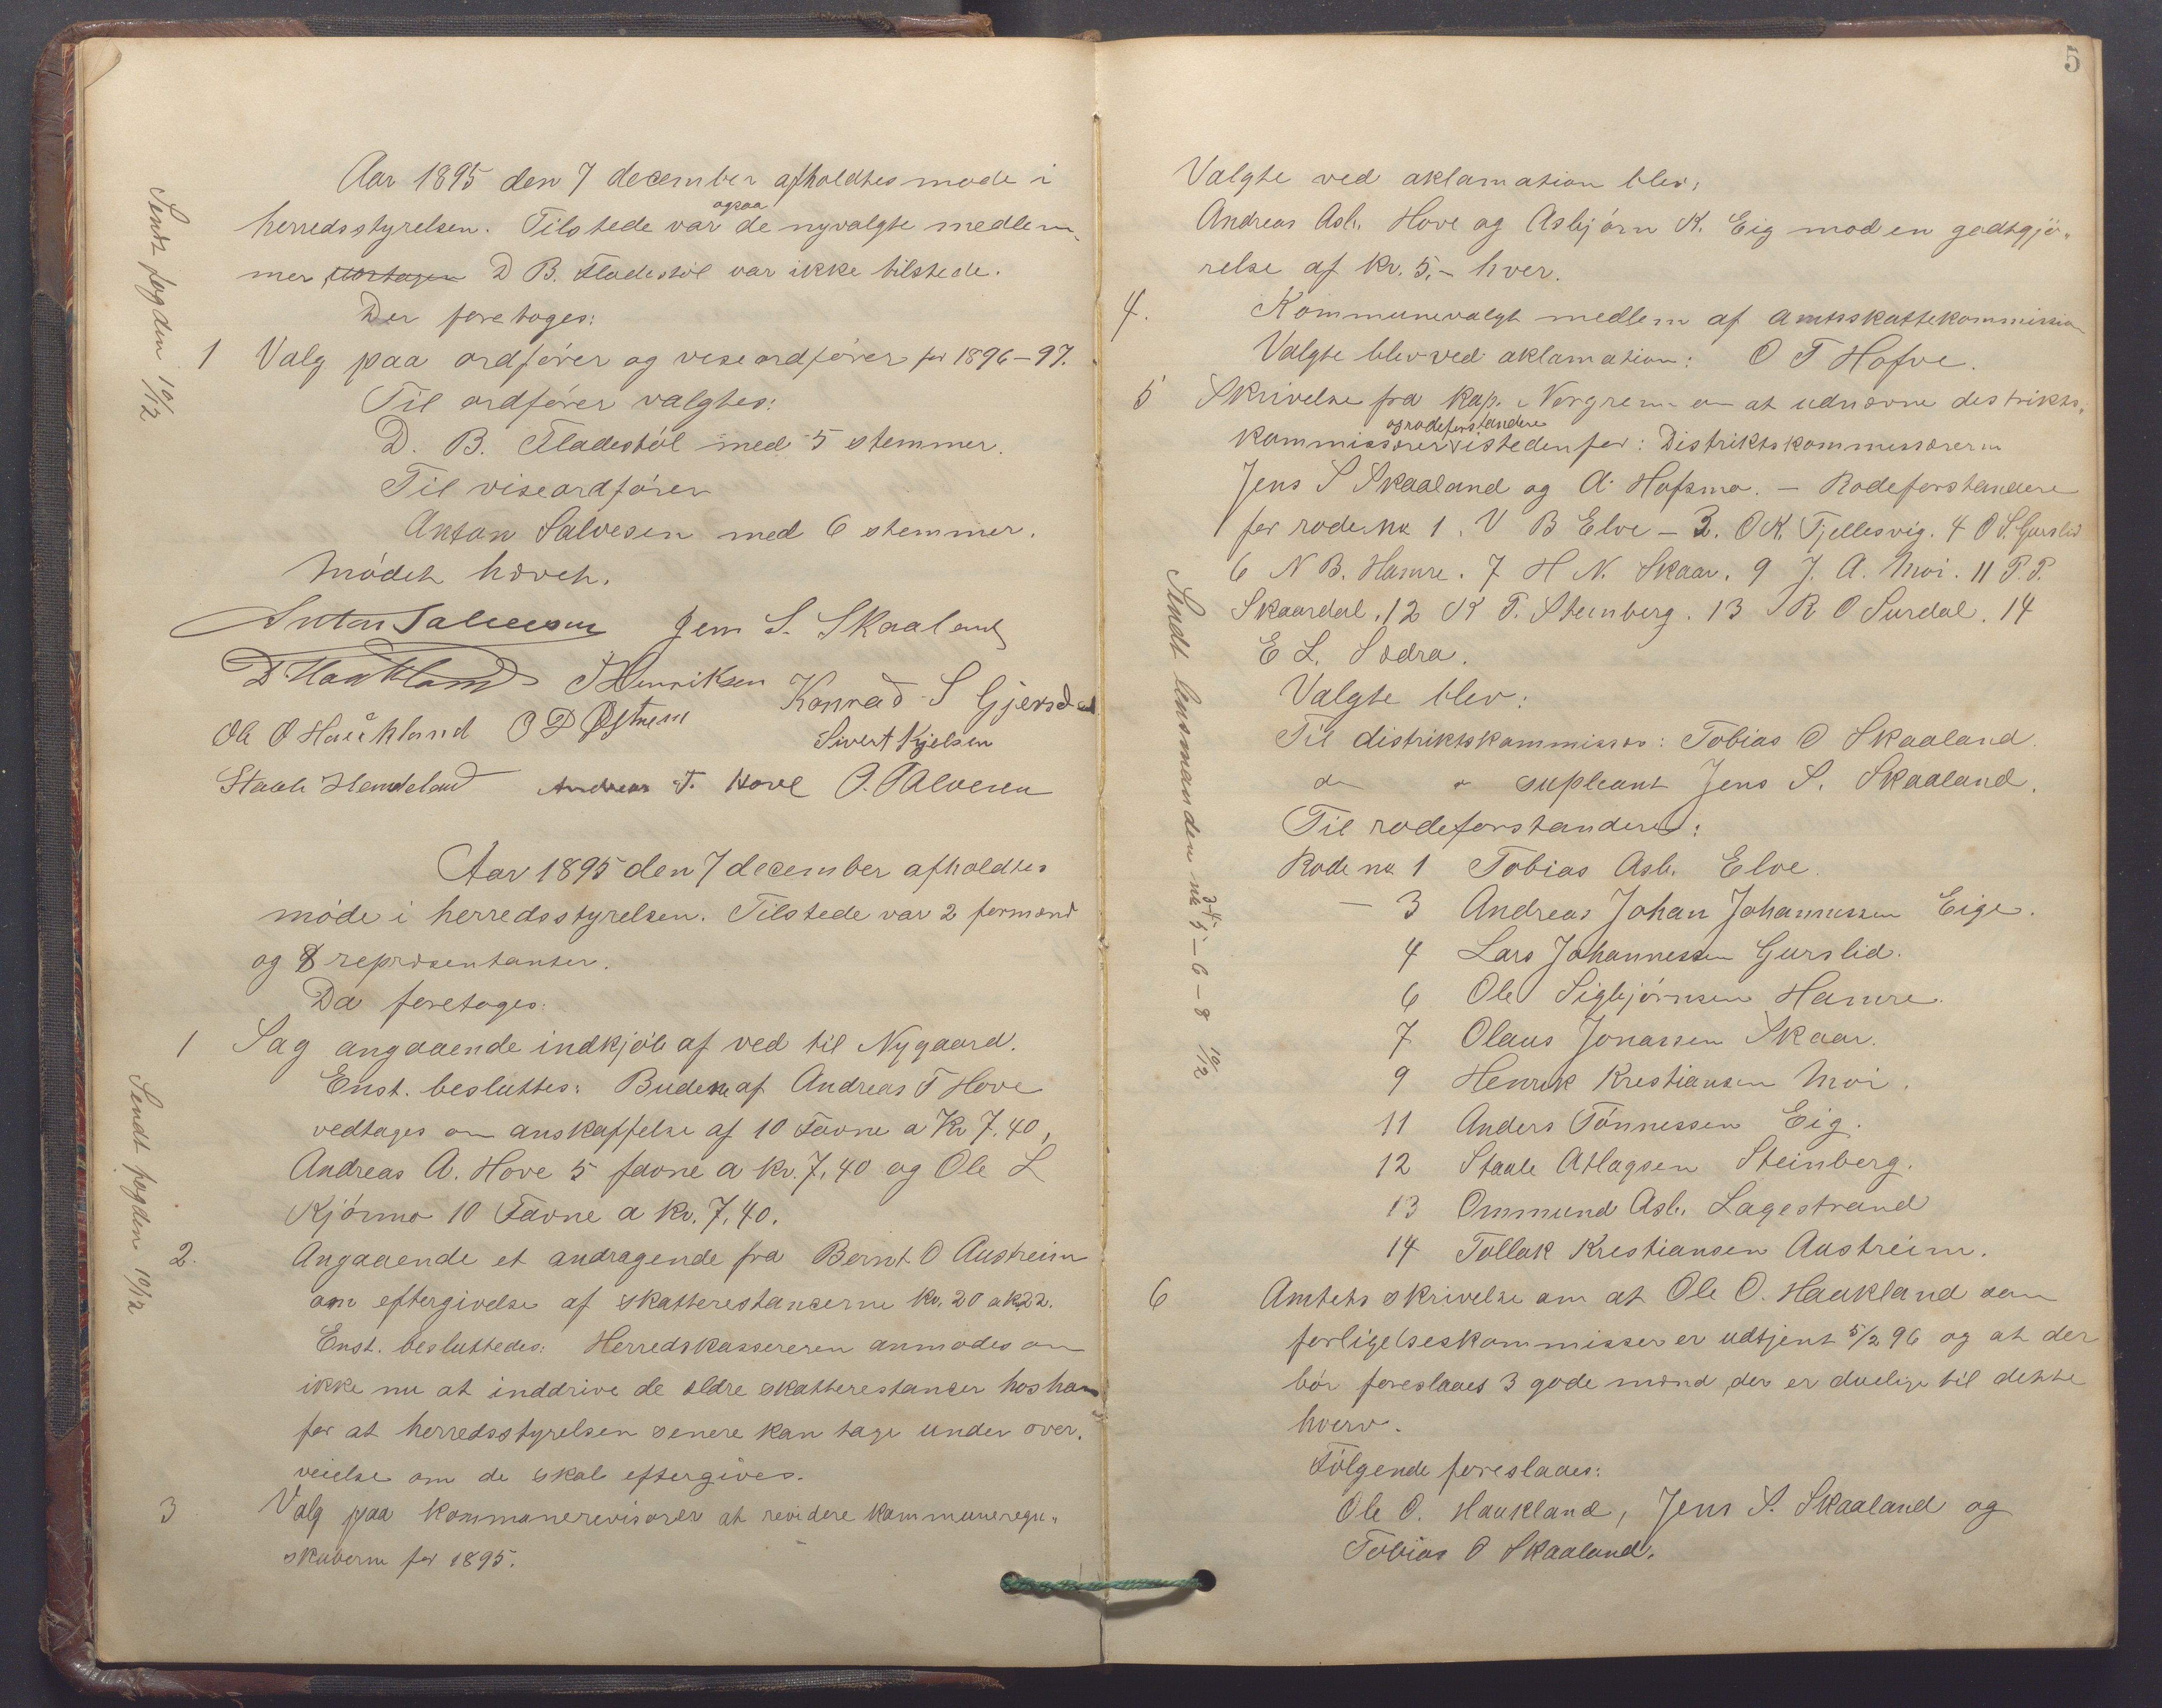 Aar 1895 den 7 december afholdtes møde i
herredsstyrelsen. Tilstede var ogsaa de nyvalgte medlem-
mer, D B. Fladestøl var ikke tilstede.
Der foretoges:
1 Valg paa ordfører og viseordfører for 1896-97.
Til ordfører valgtes:
D. B. Fladestøl med 5 stemmer.
Til viseordfører
Anton Salvesen med 6 stemmer.
Mødet hævet.
Anton Salvesen Jens S. Skaaland
D Haukland J Henriksen Konrad S Gjersdal
Ole O Haukland O D Østrem Sivert Kjelsen
Staale Hendeland Andreas T. Hove P. Salvesen
Sendt fogden 10/12
Aar 1895 den 7 december afholdtes
møde i herredsstyrelsen. Tilstede var 2 formænd
og 8 repræsentanter.
Da foretoges:
1 Sag angaaende indkjøb af ved til Nygaard.
Enst. besluttes: Budene af Andreas T Hove
vedtages om anskaffelse af 10 Favne a Kr 7.40,
Andreas A. Hove 5 favne a kr. 7,40 og Ole L
Kjørmo 10 Favne a kr. 7,40.
2. Angaaende et andragende fra Bernt O Austreim
om eftergivelse af skatterestancerne kr. 20 a k22.
Enst. besluttedes: Herredskassereren anmodes om
ikke nu at inddrive de ældre skatterestancer hos ham
for at herredsstyrelsen senere kan tage under over-
veielse om de skal eftergives.
3 Valg paa kommunerevisorer at revidere kommuneregn-
skaberne for 1895.
Sendt fogden 10/12
5
Valgte ved aklamation blev:
Andreas Asb. Hove og Asbjørn K. Eig mod en godtgjø-
relse af kr. 5,- hver.
4. Kommunevalgt medlem af amtsskattekommission
Valgte blev ved aklamation: O T Hofve.
5 Skrivelse fra kap. Norgren om at udnævne distrikts-
kommissærer og rodeforstandere istedenfor: Distriktskommissærerne
Jens S Skaaland og A. Hofsmo. - Rodeforstandere
for rode no 1. V B Elve - 3. O K. Fjellesvig. 4 O S. Gurslid
6 N B. Hamre. 7 H N. Skaar. 9 J. A. Moi. 11 P. P.
Skaardal. 12 K T. Steinberg. 13 R O Surdal. 14
E L. Sædra.
Valgte blev:
Til distriktskommissær: Tobias O Skaaland.
do " supleant Jens S. Skaaland.
Til rodeforstandere:
Rode no 1 Tobias Asb. Elve.
- 3 Andreas Johan Johannessen Eige.
4 Lars Johannessen Gurslid.
6 Ole Sigbjørnsen Hamre.
7 Olaus Jonassen Skaar.
9 Henrik Krestiansen Moi.
11 Anders Tønnessen Eig.
12 Staale Atlagsen Steinberg.
13 Ommund Asb. Lagestrand
14 Tollak Krestiansen Austreim.
6 Amtets skrivelse om at Ole O. Haukland som
forligelseskommissær er udtjent 5/2 96 og at der
bør foreslaaes 3 gode mænd, der er duelige til dette
hverv.
Følgende foreslaaes:
Ole O. Haukland, Jens S. Skaaland og
Tobias O Skaaland.
Sendt lensmanden no 3-4-5-6-8 10/12